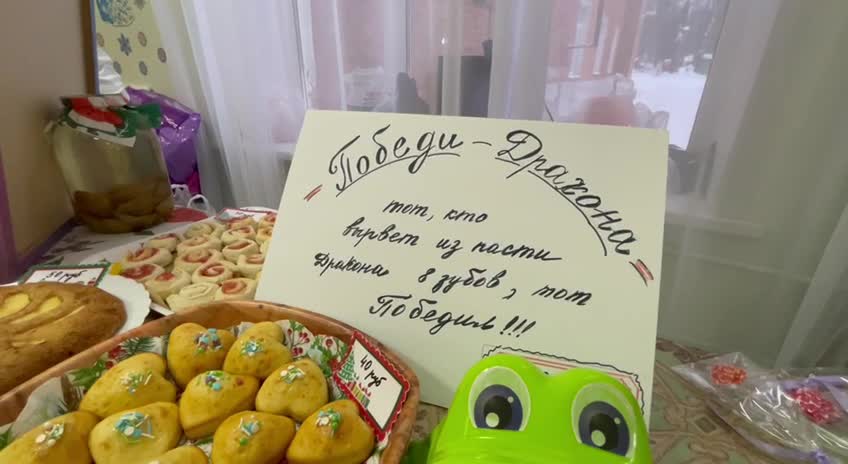 Победи - Дракона
тот, кто
вырвет из пасти
Дракона 8 зубов, тот
Победил!!!
50 руб
40
руб